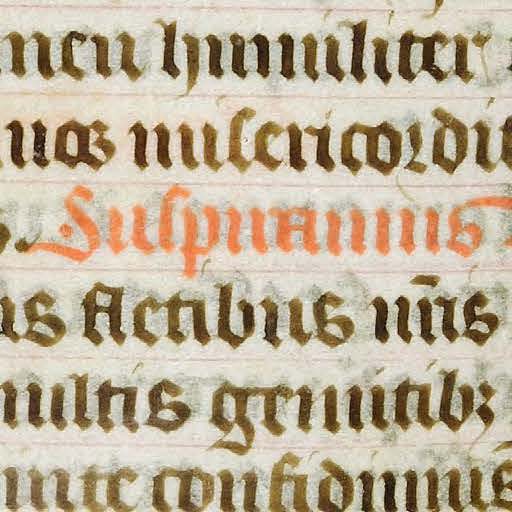 men humiliter
uas misericordie
Suspiramus
us Actibus nris
multis gemitibz
nte confidimus